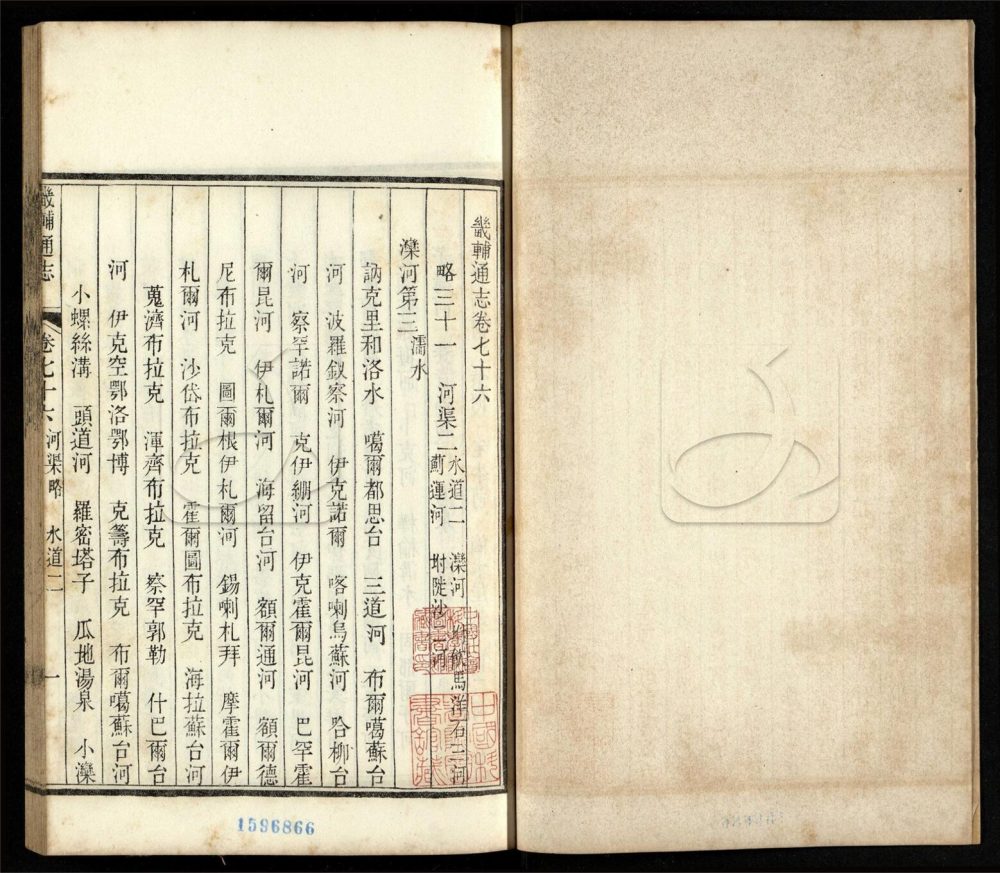 畿輔通志卷七十六
略三十一　河渠二 水道二　灤河 附飲馬洋石三河
薊運河　坿陡沙二河
灤河第三 濡水
訥克里和洛水　噶爾都思台　三道河　布爾噶蘇台
河　波羅釵察河　伊克諾爾　喀喇烏蘇河　哈柳台
河　察罕諾爾　克伊繃河　伊克霍爾昆河　巴罕霍
爾昆河　伊札爾河　海留台河　額爾通河　額爾德
尼布拉克　圖爾根伊札爾河　錫喇札拜　摩霍爾伊
札爾河　沙岱布拉克　霍爾圖布拉克　海拉蘇台河
蒐濟布拉克　渾齊布拉克　察罕郭勒　什巴爾台
河　伊克空鄂洛鄂博　克籌布拉克　布爾噶蘇台河
小螺絲溝　頭道河　羅密塔子　瓜地湯泉　小灤
畿輔通志　卷七十六　河渠略　水道二　一
1596866